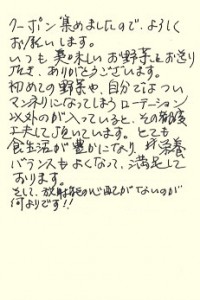 クーポン集めましたので、よろしく
お願いします。
いつも美味しいお野菜をお送り
頂き、ありがとうございます。
初めての野菜や、自分ではつい
マンネリになってしまうローテーション
以外のが入っていると、その都度
工夫して頂いています。とても
食生活が豊かになり、栄養
バランスもよくなって、満足して
おります。
そして、放射能の心配がないのが
何よりです!!